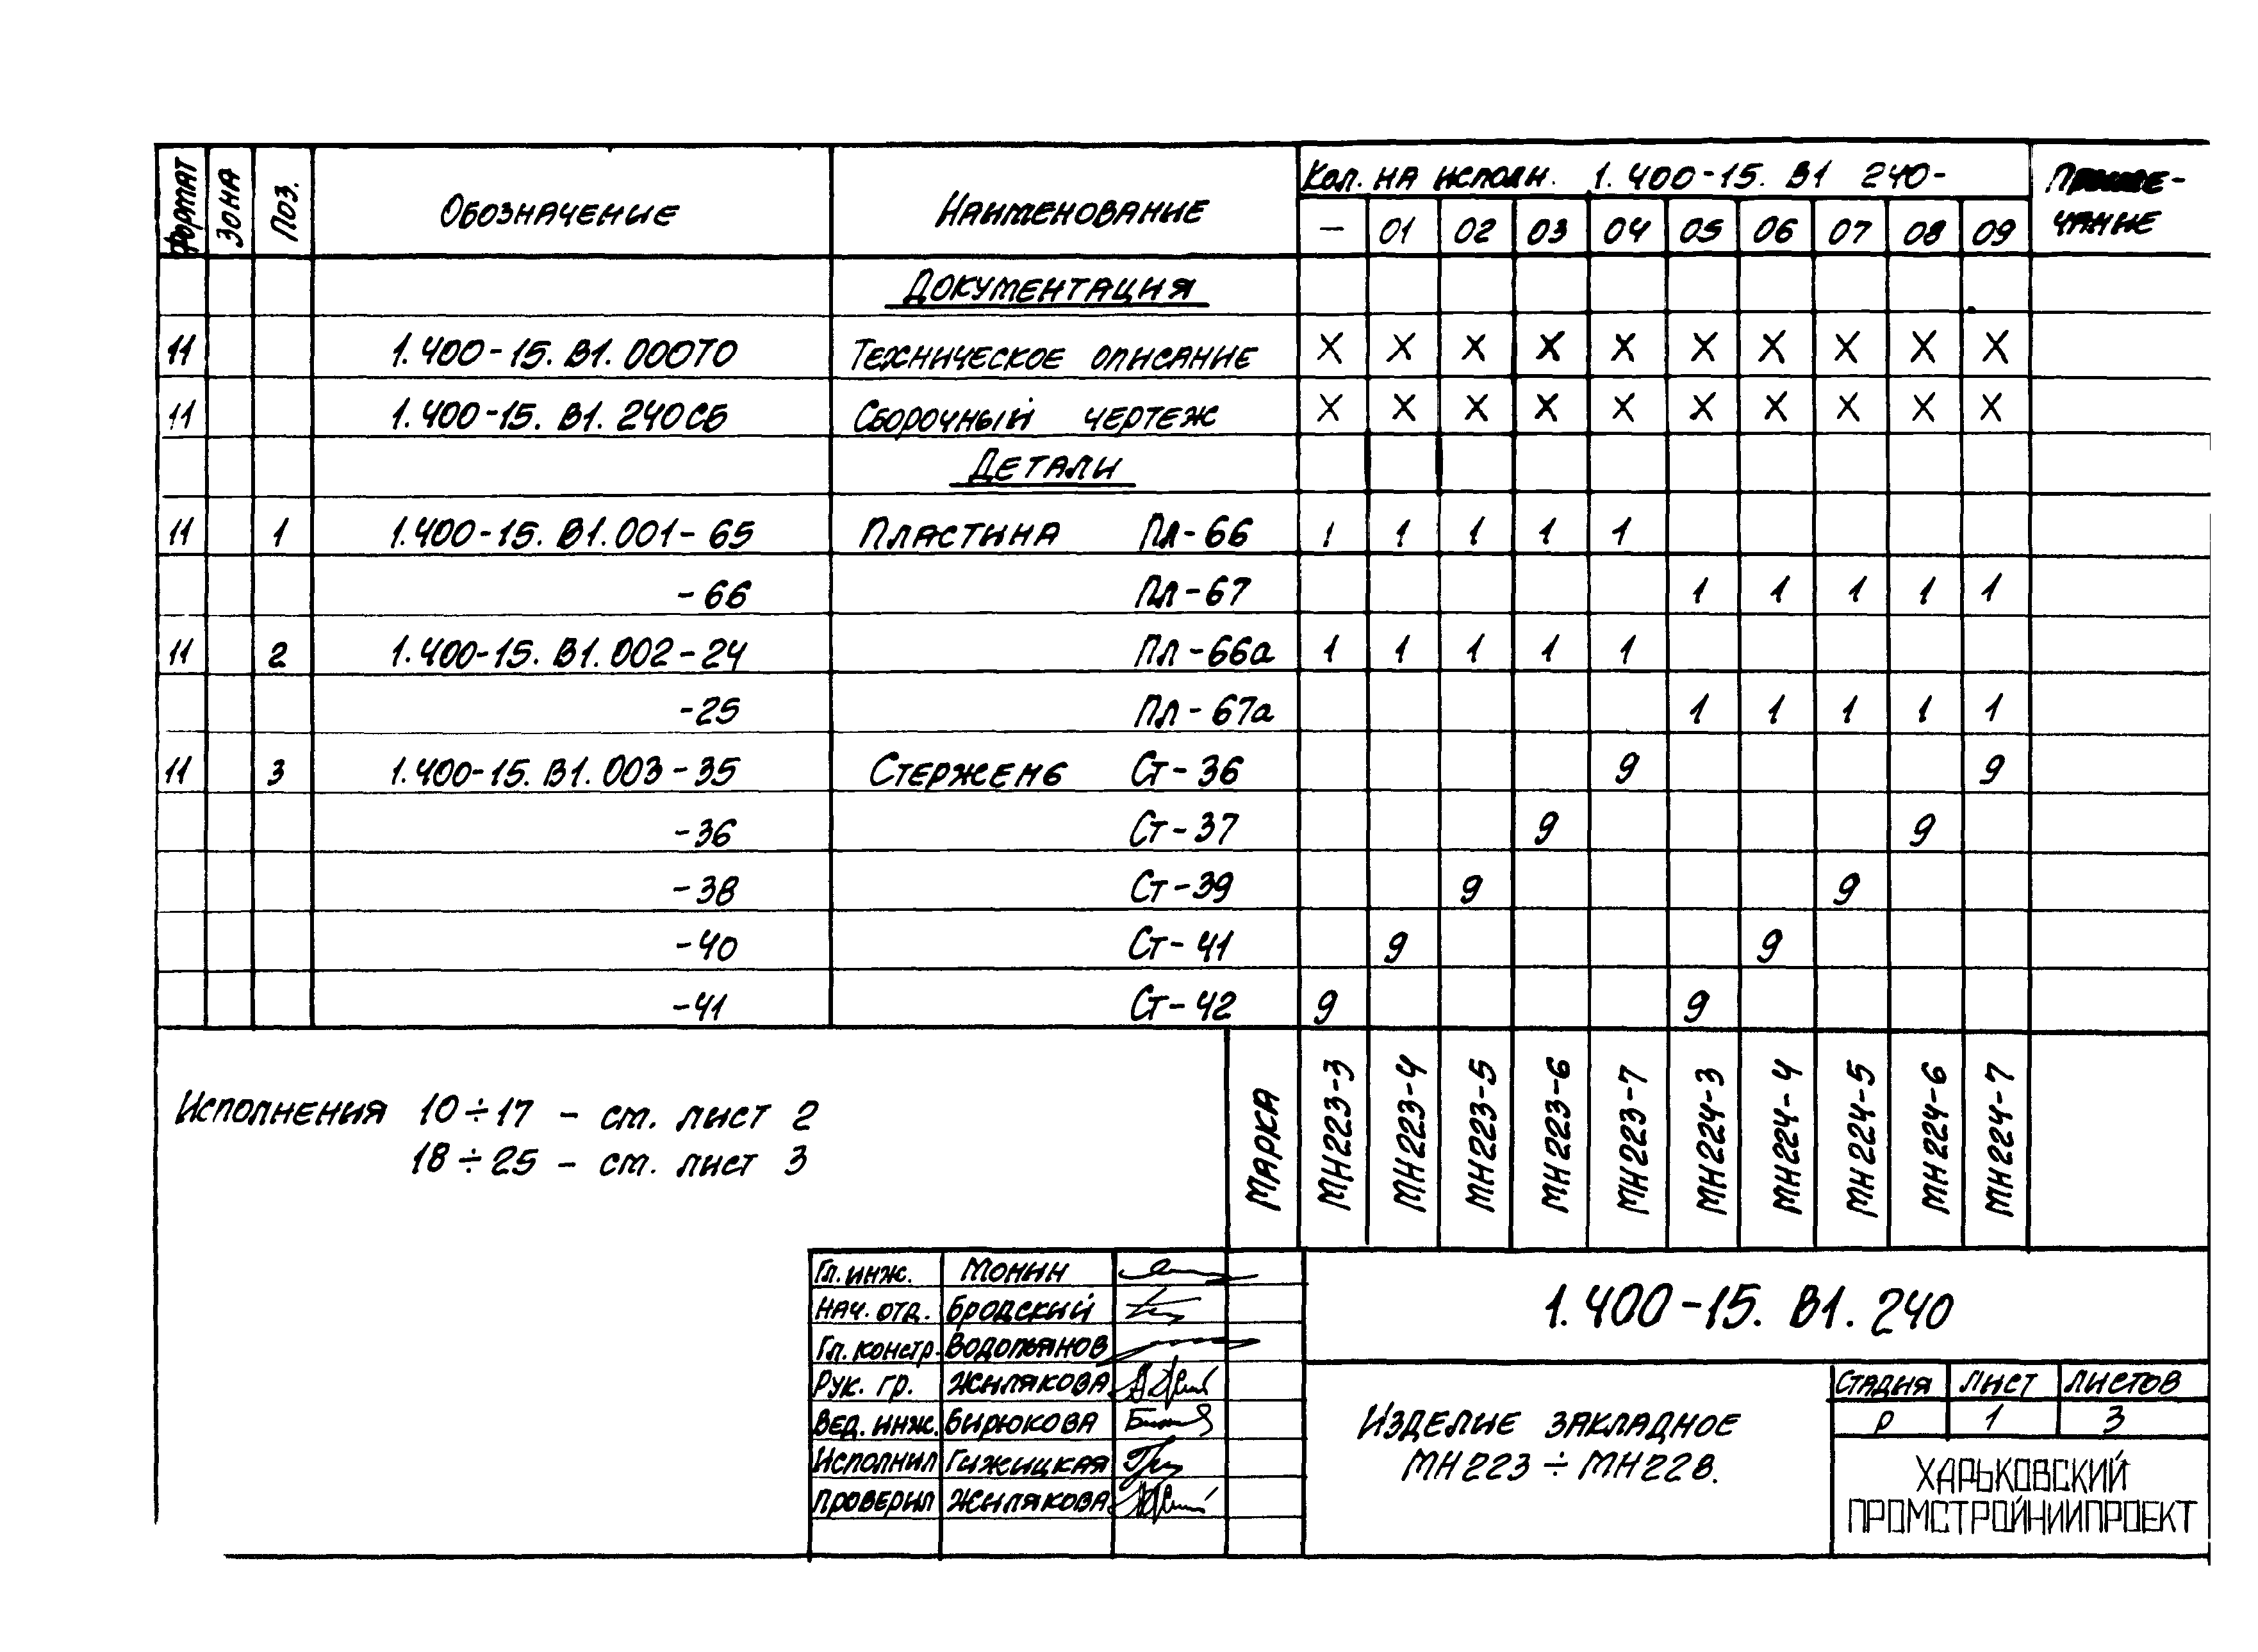 Формат Зона Поз. Обозначение Наименование Кол. на исполн. 1.400-15. В1 240- Примечание
— 01 02 03 04 05 06 07 08 09
Документация
11 1.400-15. В1. 000ТО Техническое описание X X X X X X X X X X
11 1.400-15. В1. 240СБ Сборочный чертеж X X X X X X X X X X
Детали
11 1 1.400-15. В1. 001-65 Пластина Пл-66 1 1 1 1 1
-66 Пл-67 1 1 1 1 1
11 2 1.400-15. В1. 002-24 Пл-66а 1 1 1 1 1
-25 Пл-67а 1 1 1 1 1
11 3 1.400-15. В1. 003-35 Стержень Ст-36 9 9
-36 Ст-37 9 9
-38 Ст-39 9 9
-40 Ст-41 9 9
-41 Ст-42 9 9
Марка МН223-3 МН223-4 МН223-5 МН223-6 МН223-7 МН224-3 МН224-4 МН224-5 МН224-6 МН224-7
Исполнения 10÷17 - см. лист 2
18÷25 - см. лист 3
Гл. инж. Монин
Нач. отд. Бродский
Гл. констр. Водопьянов
Рук. гр. Жилякова
Вед. инж. Бирюкова
Исполнил Гижицкая
Проверил Жилякова
1.400-15. В1. 240
Изделие закладное
МН223÷МН228.
Стадия Лист Листов
Р 1 3
ХАРЬКОВСКИЙ
ПРОМСТРОЙНИИПРОЕКТ